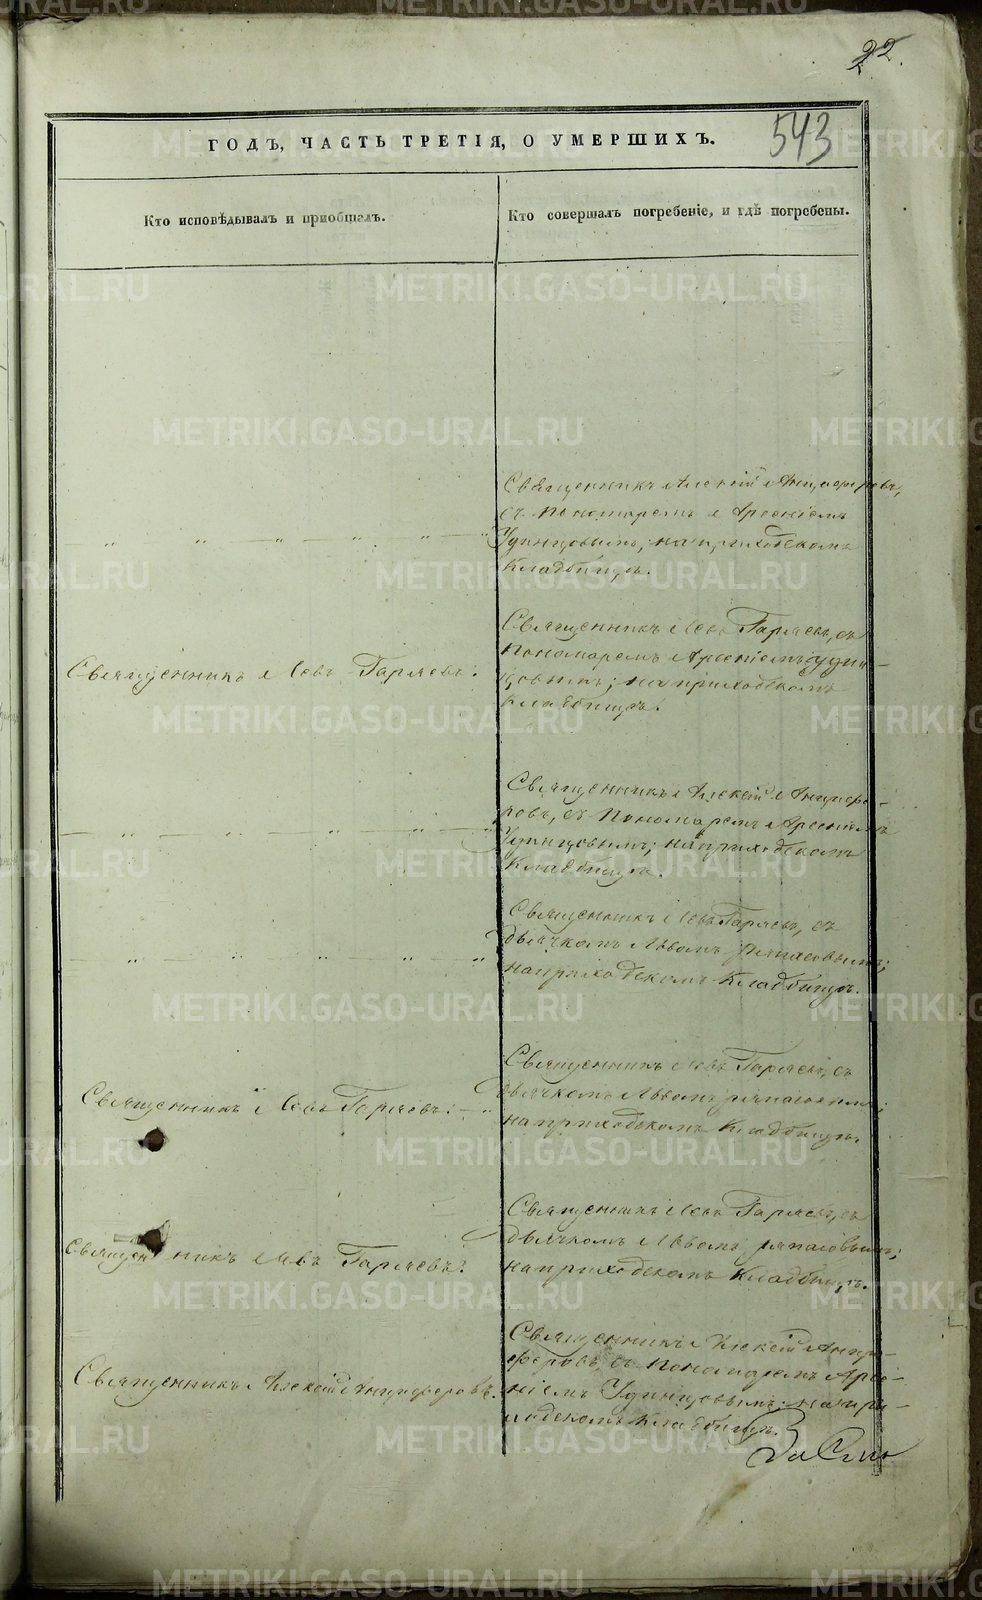 22.
543
ГОДЪ, ЧАСТЬ ТРЕТІЯ, О УМЕРШИХЪ.
Кто исповѣдывалъ и приобщалъ.
Кто совершалъ погребеніе, и гдѣ погребены.
Священникъ Алексій Анциферовъ,
съ пономаремъ Арсеніемъ
Удинцовымъ; на приходскомъ
Кладбищѣ.
Священникъ Левъ Гаряевъ.
Священникъ Левъ Гаряевъ, съ
Пономаремъ Арсеніемъ Удин-
цовымъ; на приходскомъ
кладбищѣ.
Священникъ Алексій Анцифе-
ровъ, съ Пономаремъ Арсеніемъ
Удинцовымъ; на приходскомъ
Кладбищѣ.
Священникъ Левъ Гаряевъ, съ
дьячкомъ Львомъ
на приходскомъ Кладбищѣ.
Священникъ Левъ Гаряевъ.
Священникъ Левъ Гаряевъ, съ
дьячкомъ Львомъ
на приходскомъ Кладбищѣ.
Священникъ Левъ Гаряевъ.
Священникъ Левъ Гаряевъ, съ
дьячкомъ Львомъ
на приходскомъ Кладбищѣ.
Священникъ Алексій Анциферовъ.
Священникъ Алексій Анци-
феровъ, съ Пономаремъ Арсе-
ніемъ Удинцовымъ; на при-
ходскомъ Кладбищѣ.
METRIKI.GASO-URAL.RU